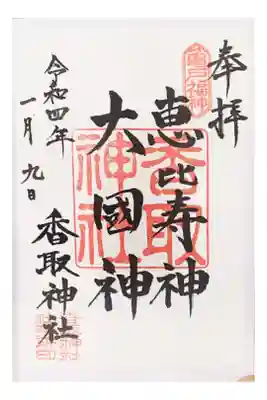 奉拝
亀戸七福神
恵比寿神
大國神
香取神社
香取神社
令和四年
一月九日